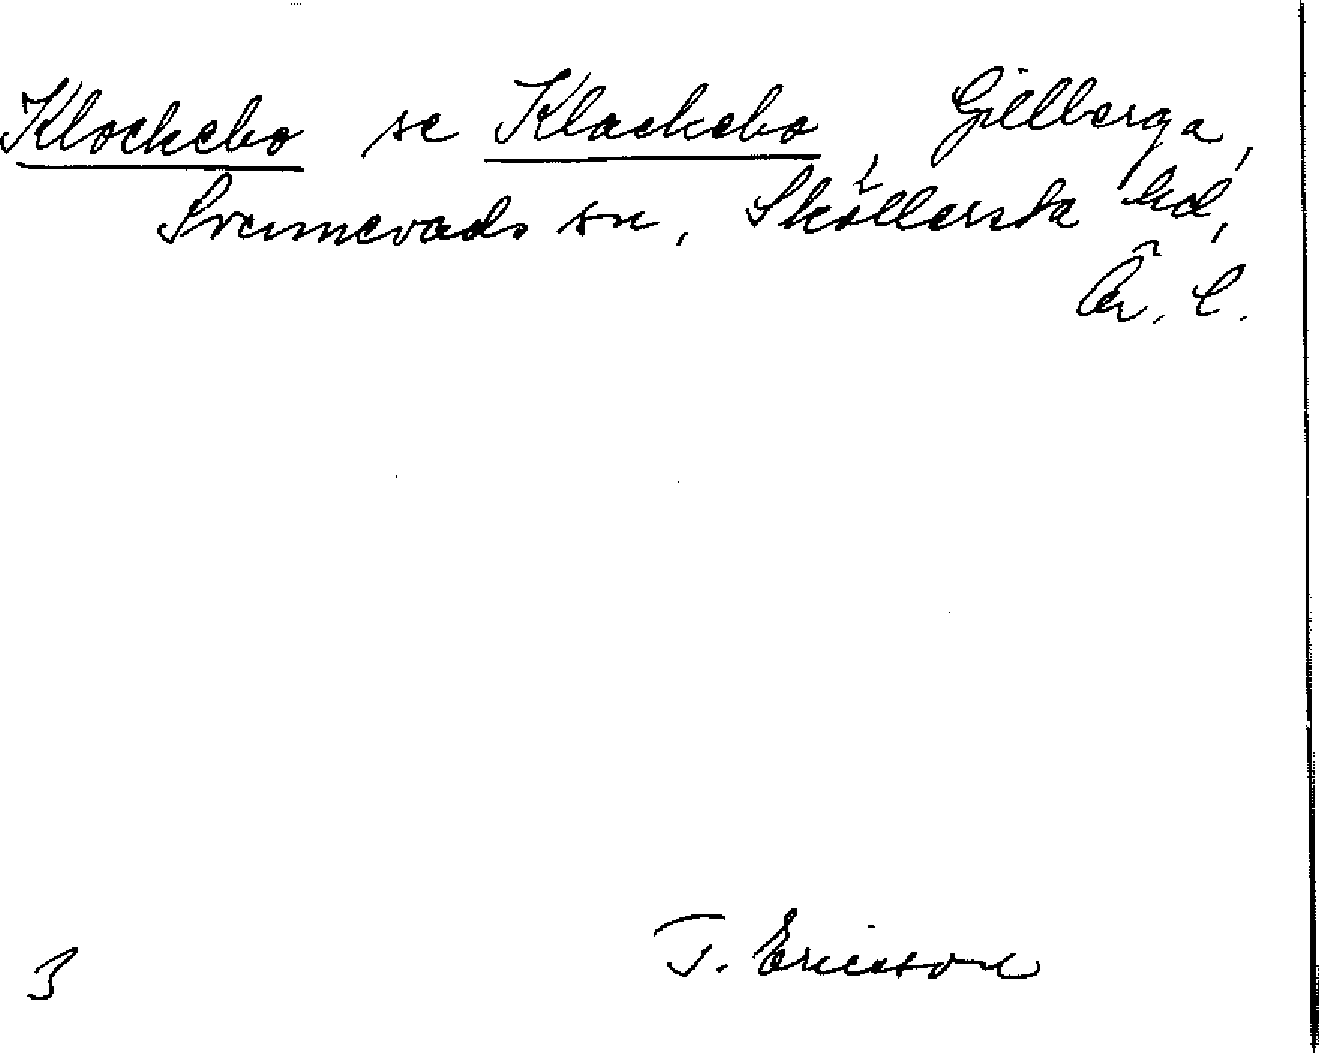 Klockebo se Klackebo, Gillberga,
Svennevads sn, Sköllersta hd,
Ör. l.
T. Ericsson
3